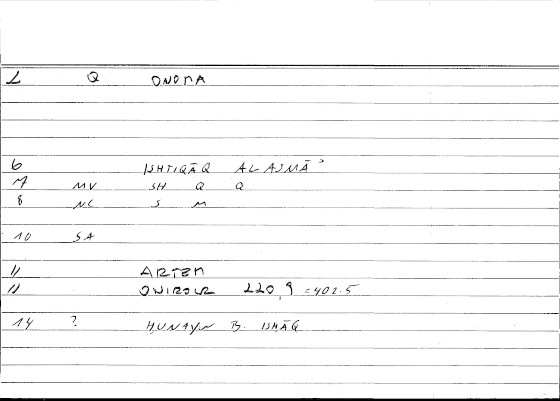 1 Q ONOMA
6 ISHTIQĀQ AL ASMĀʾ
7 MV SH Q Q
8 NC S M
10 SA
11 ARTEM
11 ONIROCR 220,9 =402.5
14 ? HUNAYN B. ISHĀQ